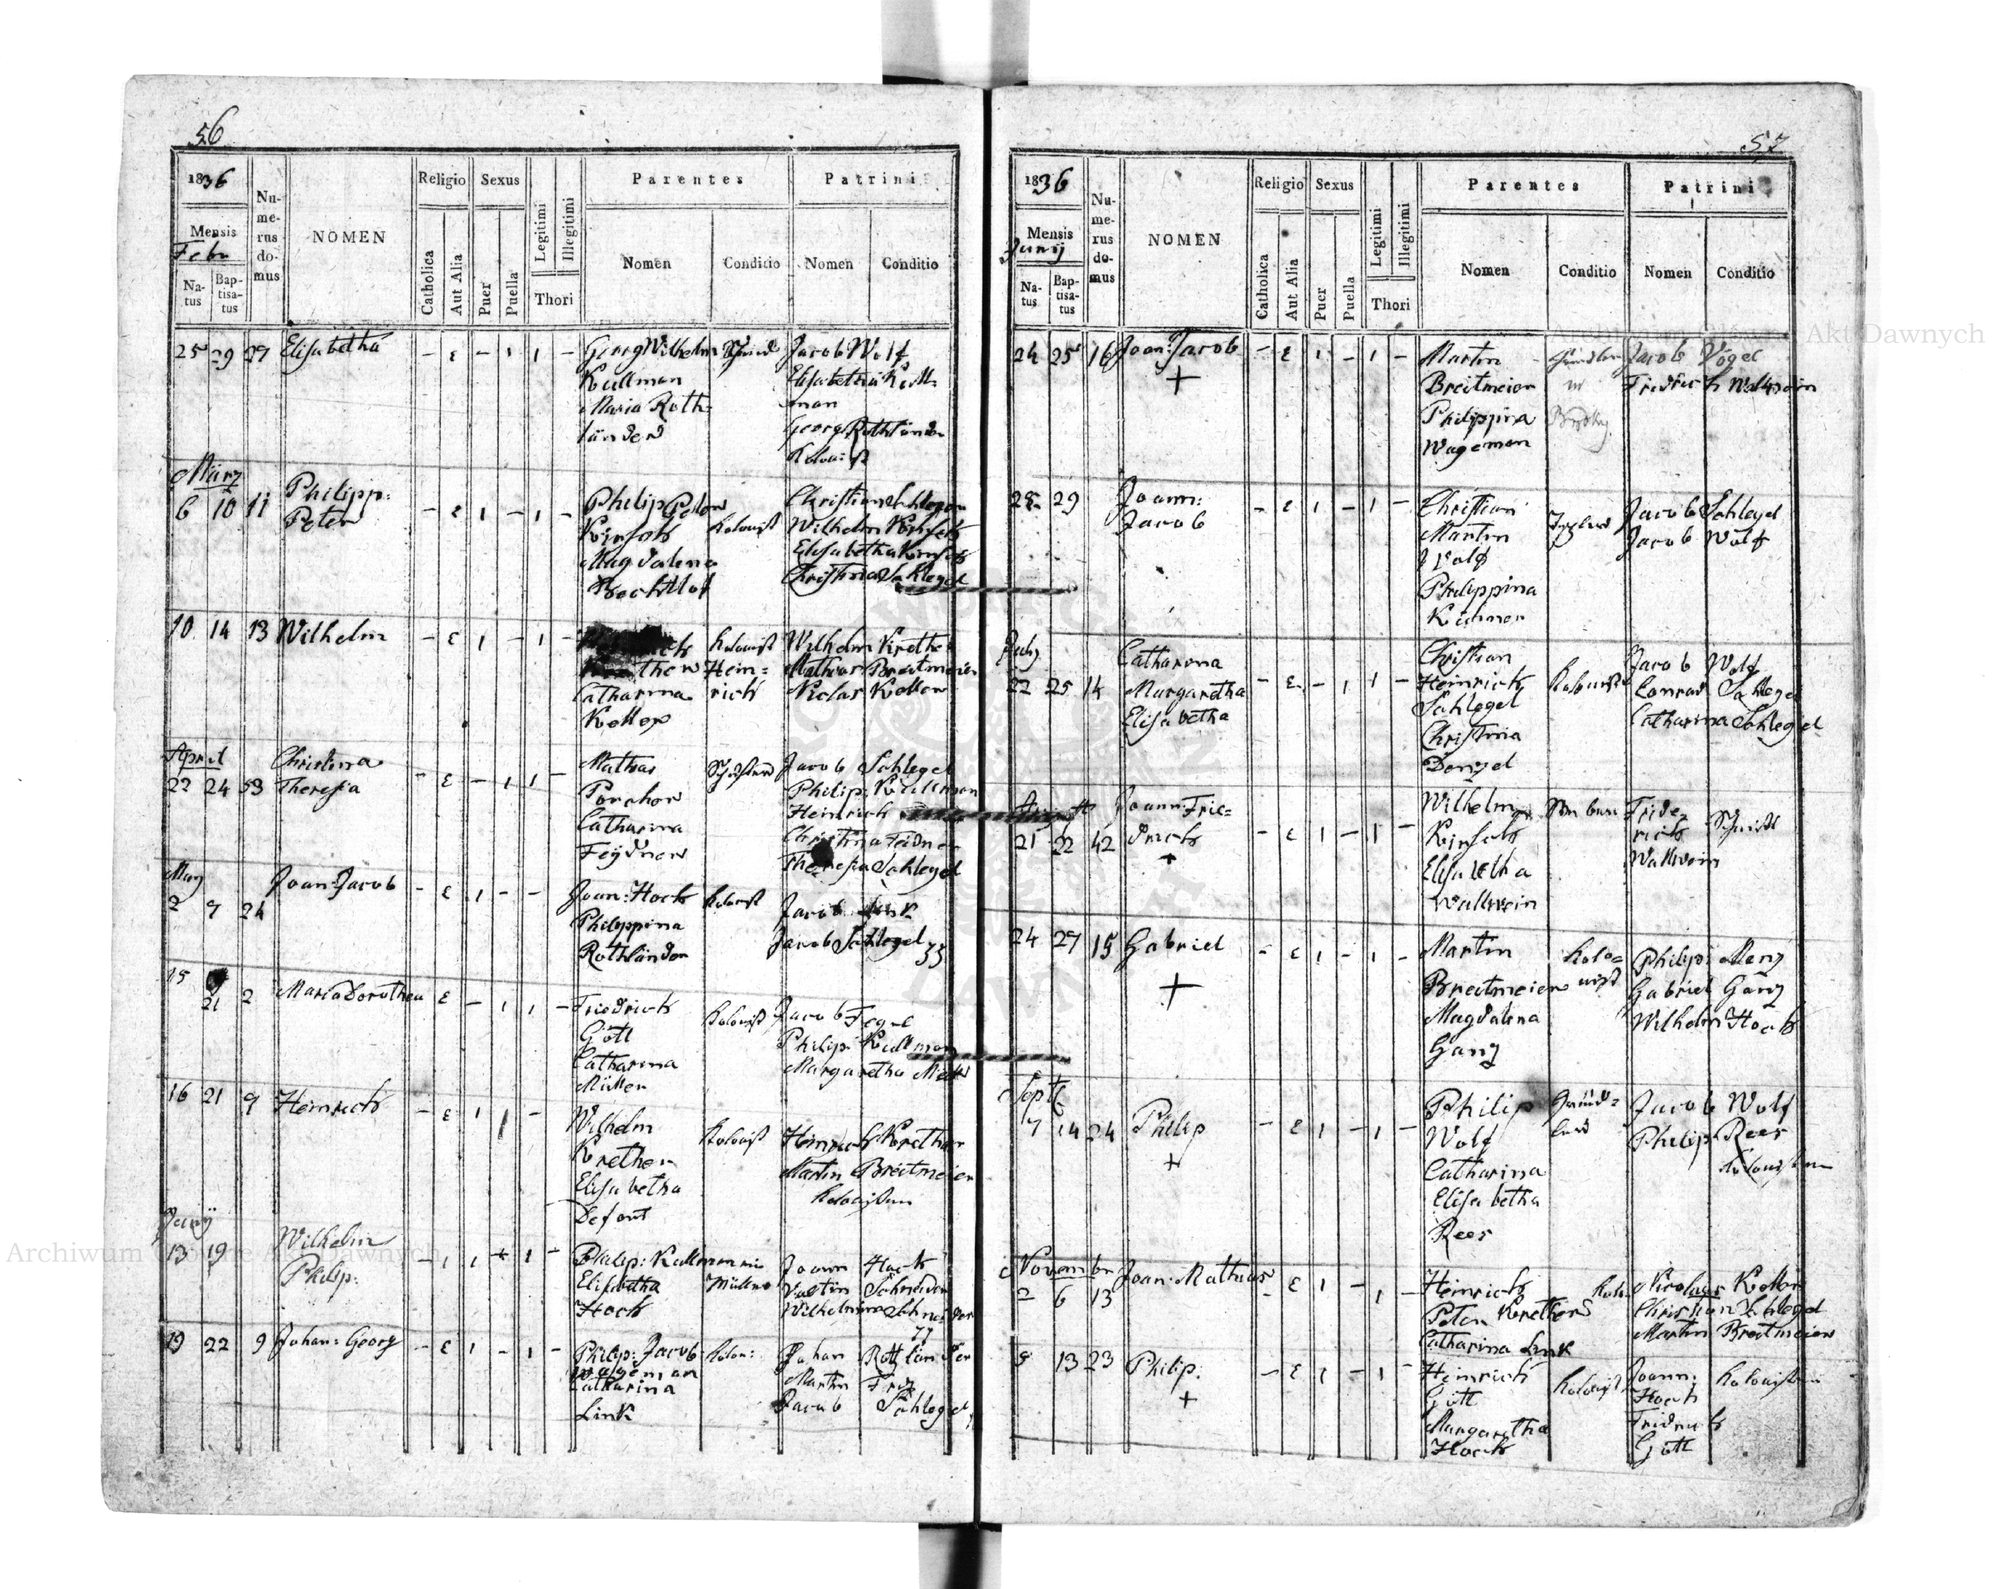 56
1836
Mensis
Febr
Natus
Baptisatus
Numerus domus
NOMEN
Religio
Catholica
Aut Alia
Sexus
Puer
Puella
Legitimi
Illegitimi
Thori
Parentes
Nomen
Conditio
Patrini
Nomen
Conditio
25 29 27 Elisabetha - ε - 1 1 - Georg Wilhelm Jacob Wolf
Kullman Elisabetha Kull-
Maria Roth- man
länder Georg Rothländer
Kolonist
März
6 10 11 Philipp: Peter - ε 1 - 1 - Philip Peter Kolonist Christian Schlegel
Wilhelm
Magdalena Elisabetha
Christina Schlegel
10 14 13 Wilhelm - ε 1 - 1 - Kolonist Wilhelm Krether
Hein- Mathias Breitmeier
Catharina rich Niclas Koller
Koller
April
22 24 53 Christina Theresia - ε - 1 1 - Mathias Jacob Schlegel
Porcher Philip: Kullman
Catharina Heinrich
Feydner Christina Feidner
Theresia Schlegel
May
2 9 24 Joan: Jacob - ε 1 - - Joan: Hoch Kolonist Jacob Link
Philippina Jacob Schlegel
Rothländer
15 21 2 Maria Dorothea ε - 1 1 - Friedrich Kolonist Jacob
Gött Philip: Kullman
Catharina Margaretha
Müller
16 21 9 Heinrich - ε 1 1 - Wilhelm Kolonist Heinrich Krether
Krether Martin Breitmeier
Elisabetha Kolonisten
Junij
13 19 Wilhelm Philip: - 1 1 + 1 - Philip: Kullmann Joann Hoch
Elisabetha Müller Schneider
Hoch Wilhelmina Schneider
19 22 9 Johan: Georg - ε 1 - 1 - Philip: Jacob Kolon: Johan Rottländer
Wageman Martin
Catharina Jacob Schlegel
Link
57
1836
Mensis
Junij
Natus
Baptisatus
Numerus domus
NOMEN
Religio
Catholica
Aut Alia
Sexus
Puer
Puella
Legitimi
Illegitimi
Thori
Parentes
Nomen
Conditio
Patrini
Nomen
Conditio
24 25 16 Joan: Jacob - ε 1 - 1 - Martin Jacob Vogel
+ Breitmeier Fridrich Wallwein
Philippina
Wageman
28 29 Joann: Jacob - ε 1 - 1 - Christian Jacob Schlegel
Martin Jacob Wolf
Wolf
Philippina
July
22 25 14 Catharina Margaretha Elisabetha - ε - 1 1 - Christian Kolonist Jacob Wolf
Heinrich Conrad Schlegel
Schlegel Catharina Schlegel
Christina
Denzel
August
21 22 42 Joann: Friedrich - ε 1 - 1 - Wilhelm Friderich
Elisabetha Wallwein
Wallwein
24 27 15 Gabriel - ε 1 - 1 - Martin Kolonist Philip: Menz
+ Breitmeier Gabriel Ganz
Magdalena Wilhelm Hoch
Ganz
Septb
7 14 24 Philip - ε 1 - 1 - Philip Jacob Wolf
+ Wolf Philip: Rees
Catharina Kolonisten
Elisabetha
Rees
November
2 6 13 Joan: Mathias - ε 1 - 1 - Heinrich Kolo: Nicolaus Koller
Peter Krether Christian Schlegel
Catharina Link Martin Breitmeier
9 13 23 Philip: - ε 1 - 1 - Heinrich Kolonist Joann: Kolonisten
+ Gött Hoch
Margaretha Fridrich
Hoch Gött
Archiwum Główne Akt Dawnych
Archiwum Główne Akt Dawnych